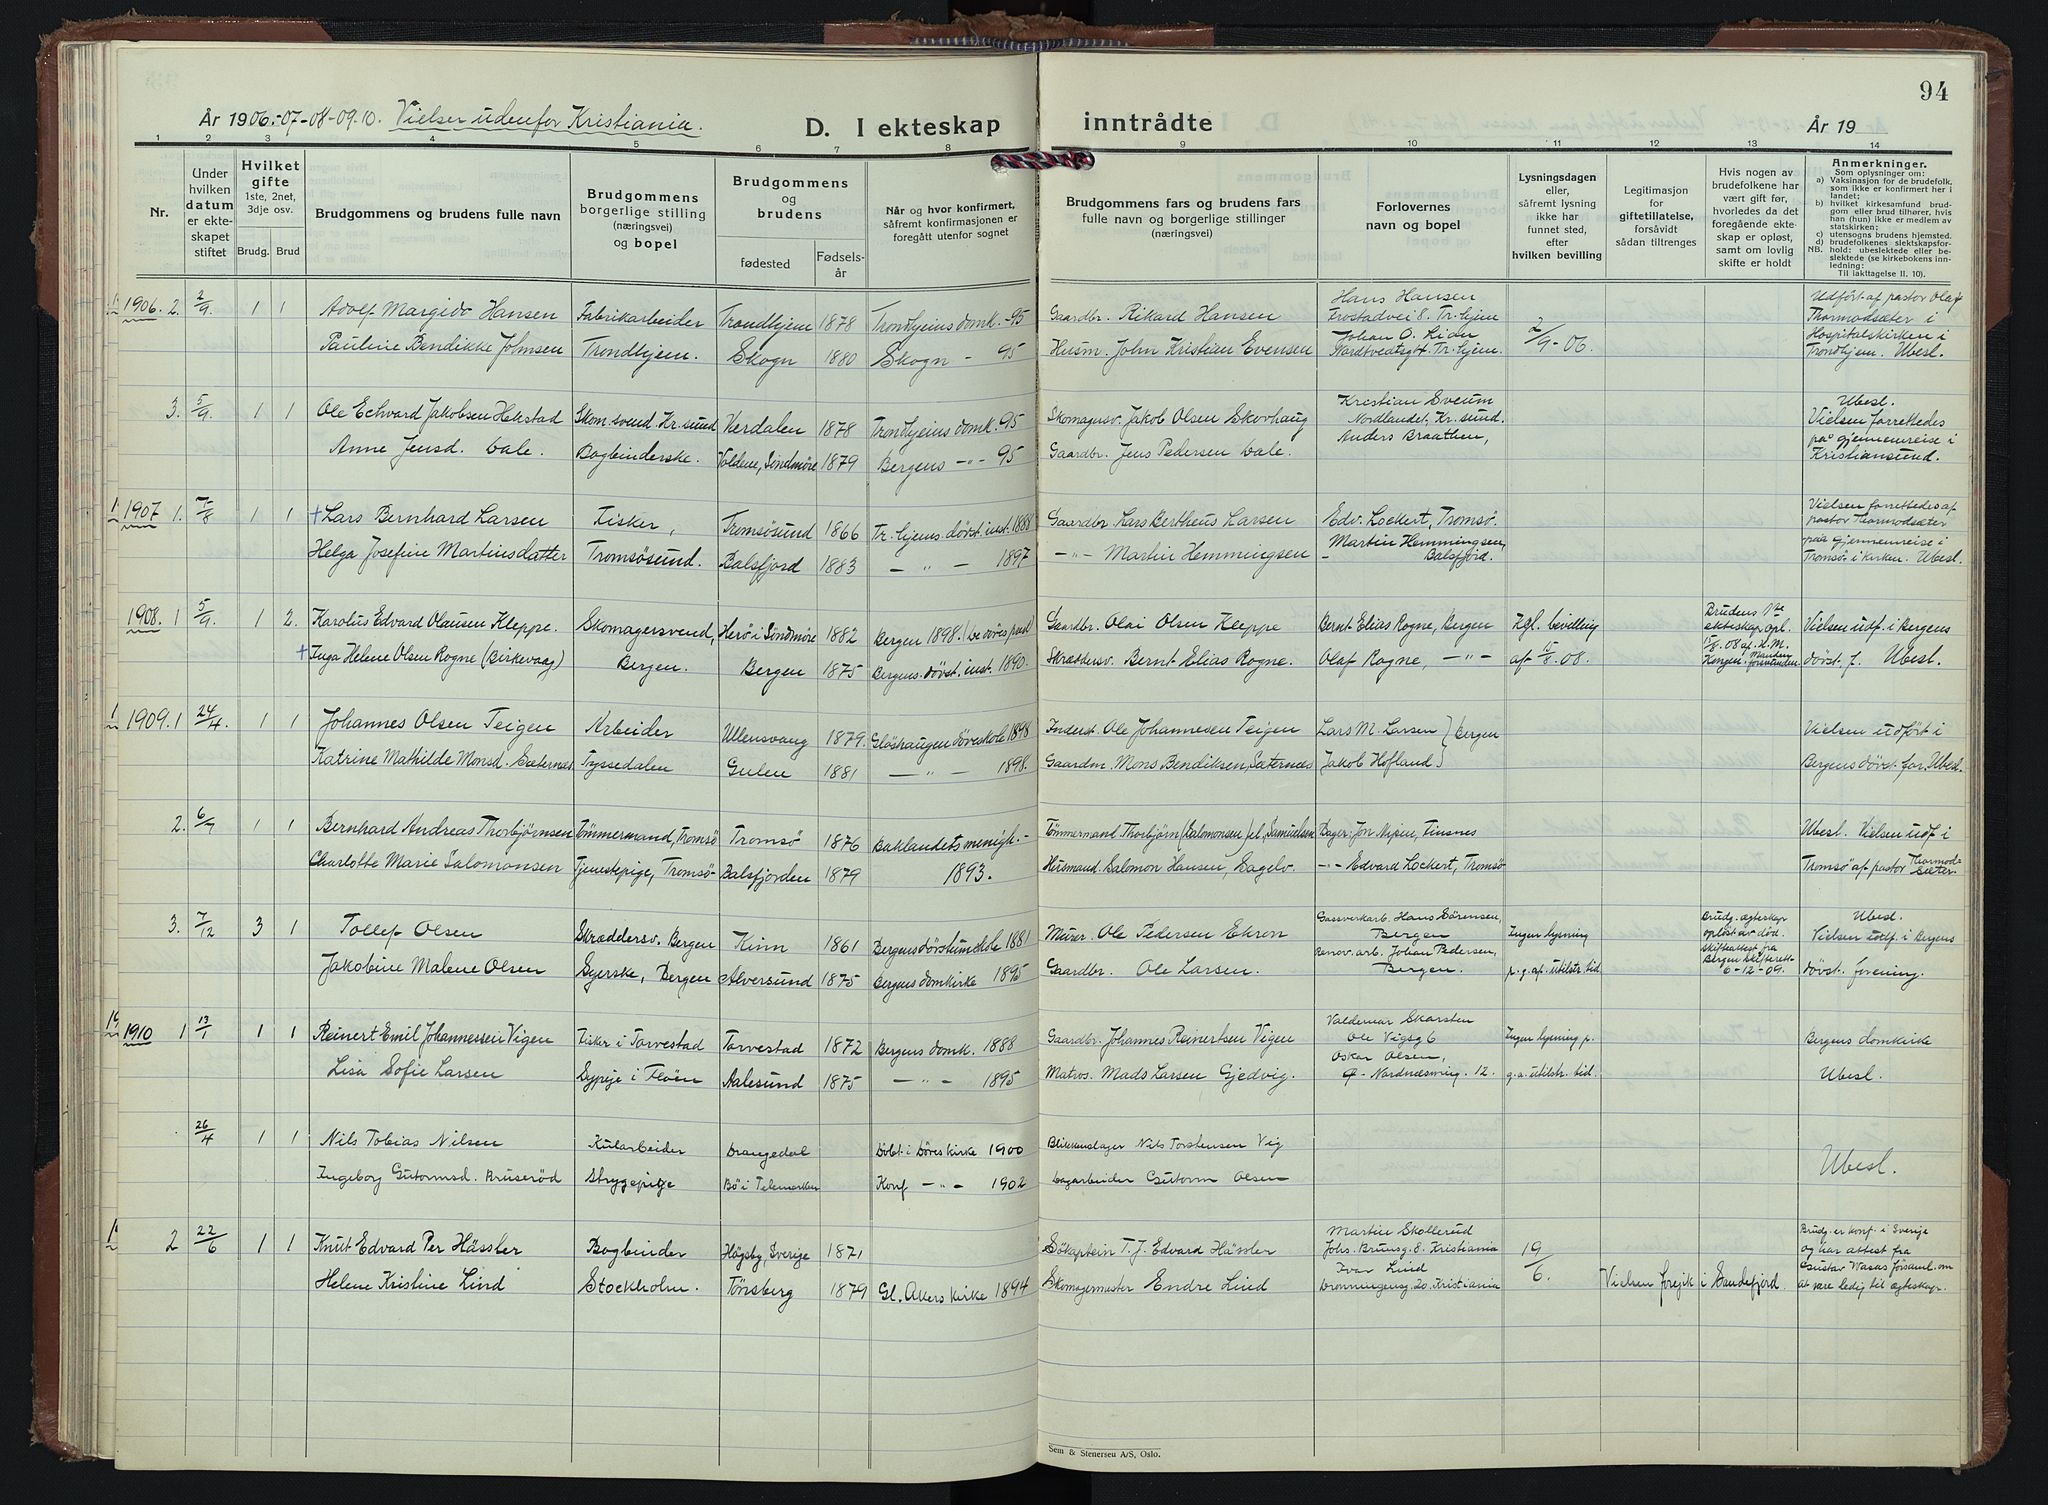 94
År 1906.-07-08-09.10. Vielser udenfor Kristiania.
D. I ekteskap inntrådte
År 19
1 2 3 4 5 6 7 8 9 10 11 12 13 14
Nr.
Under hvilken datum er ekte- skapet stiftet
Hvilket gifte 1ste, 2net, 3dje osv.
Brudg. Brud
Brudgommens og brudens fulle navn
Brudgommens borgerlige stilling (næringsvei) og bopel
Brudgommens og brudens
fødested Fødsels- år
Når og hvor konfirmert, såfremt konfirmasjonen er foregått utenfor sognet
Brudgommens fars og brudens fars fulle navn og borgerlige stillinger (næringsvei)
Forlovernes navn og bopel
Lysningsdagen eller, såfremt lysning ikke har funnet sted, efter hvilken bevilling
Legitimasjon for giftetillatelse, forsåvidt sådan tiltrenges
Hvis nogen av brudefolkene har vært gift før, hvorledes da det foregående ekte- skap er opløst, samt om lovlig skifte er holdt
Anmerkninger.
Som oplysninger om:
a) Vaksinasjon for de brudefolk, som ikke er konfirmert her i landet;
b) hvilket kirkesamfund brud- gom eller brud tilhører, hvis han (hun) ikke er medlem av statskirken;
c) utensogns brudens hjemsted.
NB. d) brudefolkenes slektskapsfor- hold: ubeslektede eller be- slektede (se kirkebokens inn- ledning: Til iakttagelse II. 10).
1906. 2. 2/9. 1 1 Adolf Margido Hansen Fabrikarbeider Trondhjem 1878 Trondhjems domk. -95 Gaardbr. Rikard Hansen Hans Hansen Frostadvei 8. Tr.hjem 2/9-06. Udført af pastor Olaf Thormodsæter i
Pauline Bendikke Johnsen Trondhjem. Skogn 1880 Skogn - 95 Husm. John Kristian Evensen Johan O. Lian Nordtvedtsg 4. Tr.hjem. Hospitalskirken i Trondhjem. Ubesl.
3. 5/9. 1 1 Ole Edvard Jakobsen Hekstad Skom.svend. Kr.sund Værdalen 1878 Trondhjems domk. 95 Skomagersv. Jakob Olsen Skovhaug Kristian Sveum Nordlandet, Kr.sund. Ubesl. Vielsen forrettedes
Anne Jensd. Aale. Bogbinderske. Voldene, Søndmøre 1879 Bergens -"- 95 Gaardbr. Jens Pedersen Aale. Anders Braathen, paa gjennemreise i Kristiansund.
1907 1. 7/8 1 1 + Lars Bernhard Larsen Fisker, Tromsøsund 1866 Tr.hjems døvst.inst. 1888 Gaardbr Lars Bertheus Larsen Edv. Lockert, Tromsø. Vielsen forrettedes af pastor Thormodsæter
Helga Josefine Martinsdatter Tromsøsund. Balsfjord 1883 - " - 1897 -"- Martin Hemmingsen - Martin Hemmingsen, Balsfjord. paa gjennemreise i Tromsø i kirken. Ubesl.
1908. 1 5/9. 1 2. Karolus Edvard Olausen Kleppe. Skomagersvend, Herø i Søndmøre 1882 Bergen 1898. (de døves præst) Gaardbr. Olai Olsen Kleppe Bernt Elias Rogne, Bergen Kgl. bevilling Brudens 1ste ekteskap opl. Vielsen udf. i Bergens
+ Inga Helene Olsen Rogne (Birkevaag) Bergen. Bergen 1875 Bergens døvst. inst. 1890. Skræddersv. Bernt Elias Rogne. Olaf Rogne, -"- af 15/8.08. 15/8.08 af H.M. Kongen. Manden forsvunden døvst. f. Ubesl.
1909. 1 24/4. 1 1 Johannes Olsen Teigen Arbeider Ullensvang 1879. Gløshaugen døveskole 1898 Inderst. Ole Johannesen Teigen Lars M. Larsen } Bergen Vielsen udført i
Katrine Mathilde Monsd. Sæternæs Tyssedalen Gulen 1881 - " - 1898. Gaardm. Mons Bendiksen, Sæternæs Jakob Hofland } Bergens døvst. for. Ubesl.
2. 6/7 1 1 Bernhard Andreas Thorbjørnsen Tømmermand, Tromsø Tromsø 1876 Baklandets menigh. - Tømmermand Thorbjørn (Salomonsen) el. Samuelsen Bager: Jon Nipen, Finsnes Ubesl. Vielsen udf. i
Charlotte Marie Salomonsen Tjenestepige, Tromsø- Balsfjorden 1879 1893. Husmand. Salomon Hansen, Sagelv. -"- Edvard Lockert, Tromsø Tromsø af pastor Thormodsæter
3. 7/12 3 1 Tollef Olsen Skræddersv. Bergen Kinn 1861 Bergens døvstumskole 1881 Murer. Ole Pedersen Ekren Gassverkarb. Hans Sørensen, Bergen Ingen lysning Brudg. ægteskap opløst av død. Skifteattest fra Ubesl. Vielsen utf. i Bergens
Jakobine Malene Olsen Syerske, Bergen Alversund 1875 Bergens domkirke 1895 Gaardbr. Ole Larsen. Renov. arb. Johan Pedersen, Bergen. p.g.af. utilstr. tid Bergen skifterett 6-12-09. døvst. forening.
1910 1 13/1 1 1 Reinert Emil Johannessen Vigen Fisker i Torvestad Torvestad 1872 Bergens domk. 1888 Gaardbr. Johannes Reinertsen Vigen Valdemar Skarsten Ole Vigsg 6 Ingen lysning p. Bergens domkirke
Lisa Sofie Larsen Sypige i Feøen Aalesund 1875 - " - 1895 Matros. Mads Larsen Gjedvig. Oskar Olsen, Nordnæsveig. 12. g.a. utilstr. tid. Ubesl.
26/4 1 1 Nils Tobias Nilsen Kularbeider Drangedal Døbt i Døves kirke 1900 Blikkenslager Nils Torstensen Vig
Ingeborg Gutormsd. Bruserød Strygepige Bø i Telemarken Konf -"- 1902 Dagarbeider Gutorm Olsen Ubesl.
2 22/6 1 1 Knut Edvard Per Hässler Bogbinder Högsby, Sverige 1871 Søkaptein T. J. Edvard Hässler Martin Skollerud Johs. Brunsg. 8. Kristiania 19/6. Brudg. er konf. i Sverige og har attest fra
Helene Kristine Lind Stockholm. Tönsberg 1879 Gl. Akers kirke 1894 Skomagermester Endre Lind Ivar Lind Dronningensg 20. Kristiania Vielsen foregik i Sandefjord. Gustav Wasas forsaml. om at være ledig til ægteskap.
Sem & Stenersen A/S, Oslo.